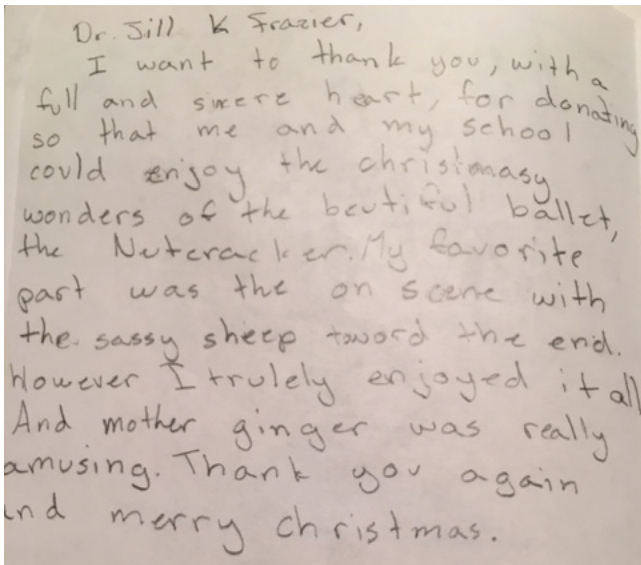 Dr. Jill K Frazier,
I want to thank you, with a
full and sincere heart, for donating
so that me and my school
could enjoy the christmasy
wonders of the beutiful ballet,
the Nutcracker. My favorite
part was the on scene with
the sassy sheep toword the end.
However I trulely enjoyed it all
And mother ginger was really
amusing. Thank you again
and merry christmas.